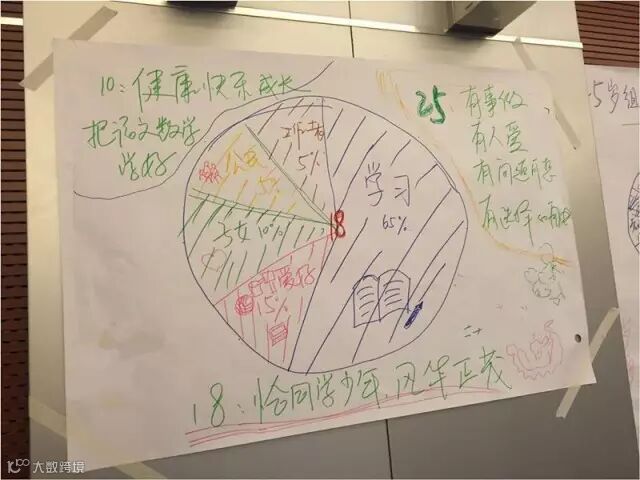 10：健康、快乐成长
把语文数学
学好
25
有事做
有人爱
有问题可想
5岁组
工作者
5%
公益
5%
子女10%
爱好
15%
学习
65%
18
18：恰同学少年，风华正茂
大数跨境